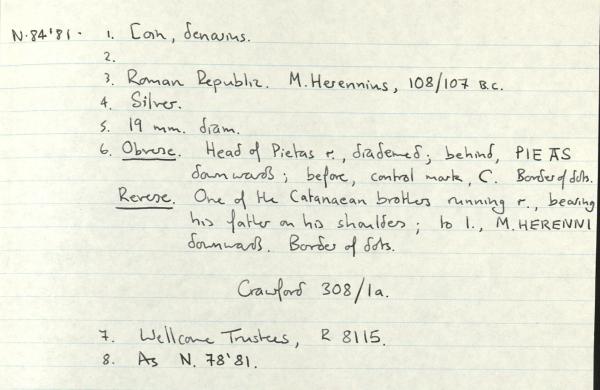 N.84'81. 1. Coin, denarius.
2.
3. Roman Republic. M. Herennius, 108/107 B.C.
4. Silver.
5. 19 mm. diam.
6. Obverse. Head of Pietas r., diademed; behind, PIETAS
downwards; before, control mark, C. Border of dots.
Reverse. One of the Catanaean brothers running r., bearing
his father on his shoulders; to l., M. HERENNI
downwards. Border of dots.
Crawford 308/1a.
7. Wellcome Trustees, R 8115.
8. As N. 78'81.